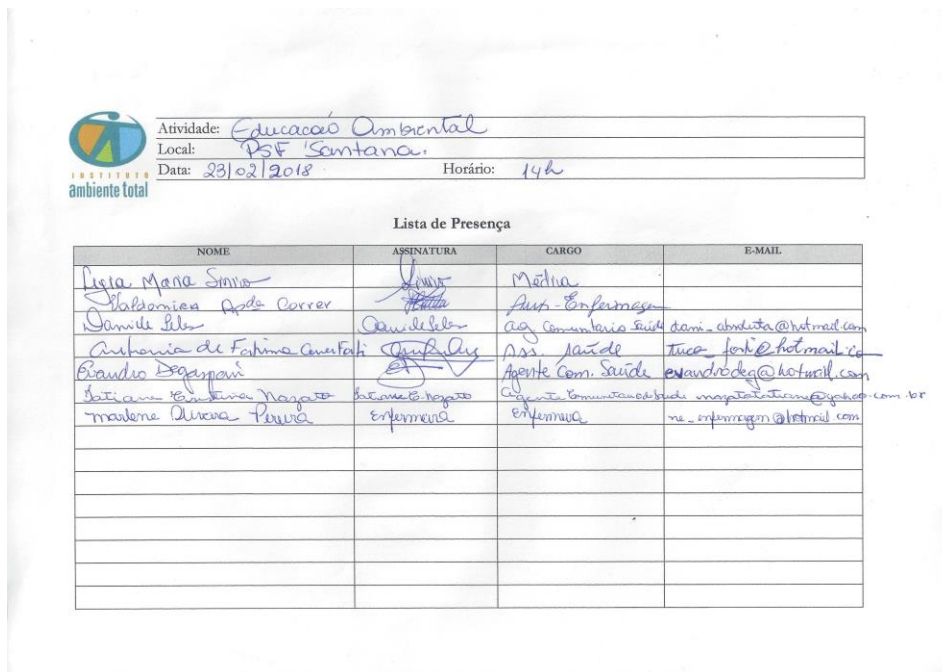 INSTITUTO
ambiente total
Atividade: Educação Ambiental
Local: PSF Santana.
Data: 23/02/2018 Horário: 14h
Lista de Presença
NOME ASSINATURA CARGO E-MAIL
Maria Médica
Valdomira Apda Correr Aux-Enfermagem
Daniele Daniele ag Comunitario Saúde dani_absoluta@hotmail.com
de Fatima Ass. saúde tuca_forti@hotmail.co
Evandro Degaspari Agente Com. Saúde evandrodeg@hotmail.com
Tatiane Cristina Nozato Tatiane C. Nozato Agente Comunitario Saude nozatotatiane@yahoo.com.br
Marlene Oliveira Pereira Enfermeira Enfermeira ne_enfermagem@hotmail.com